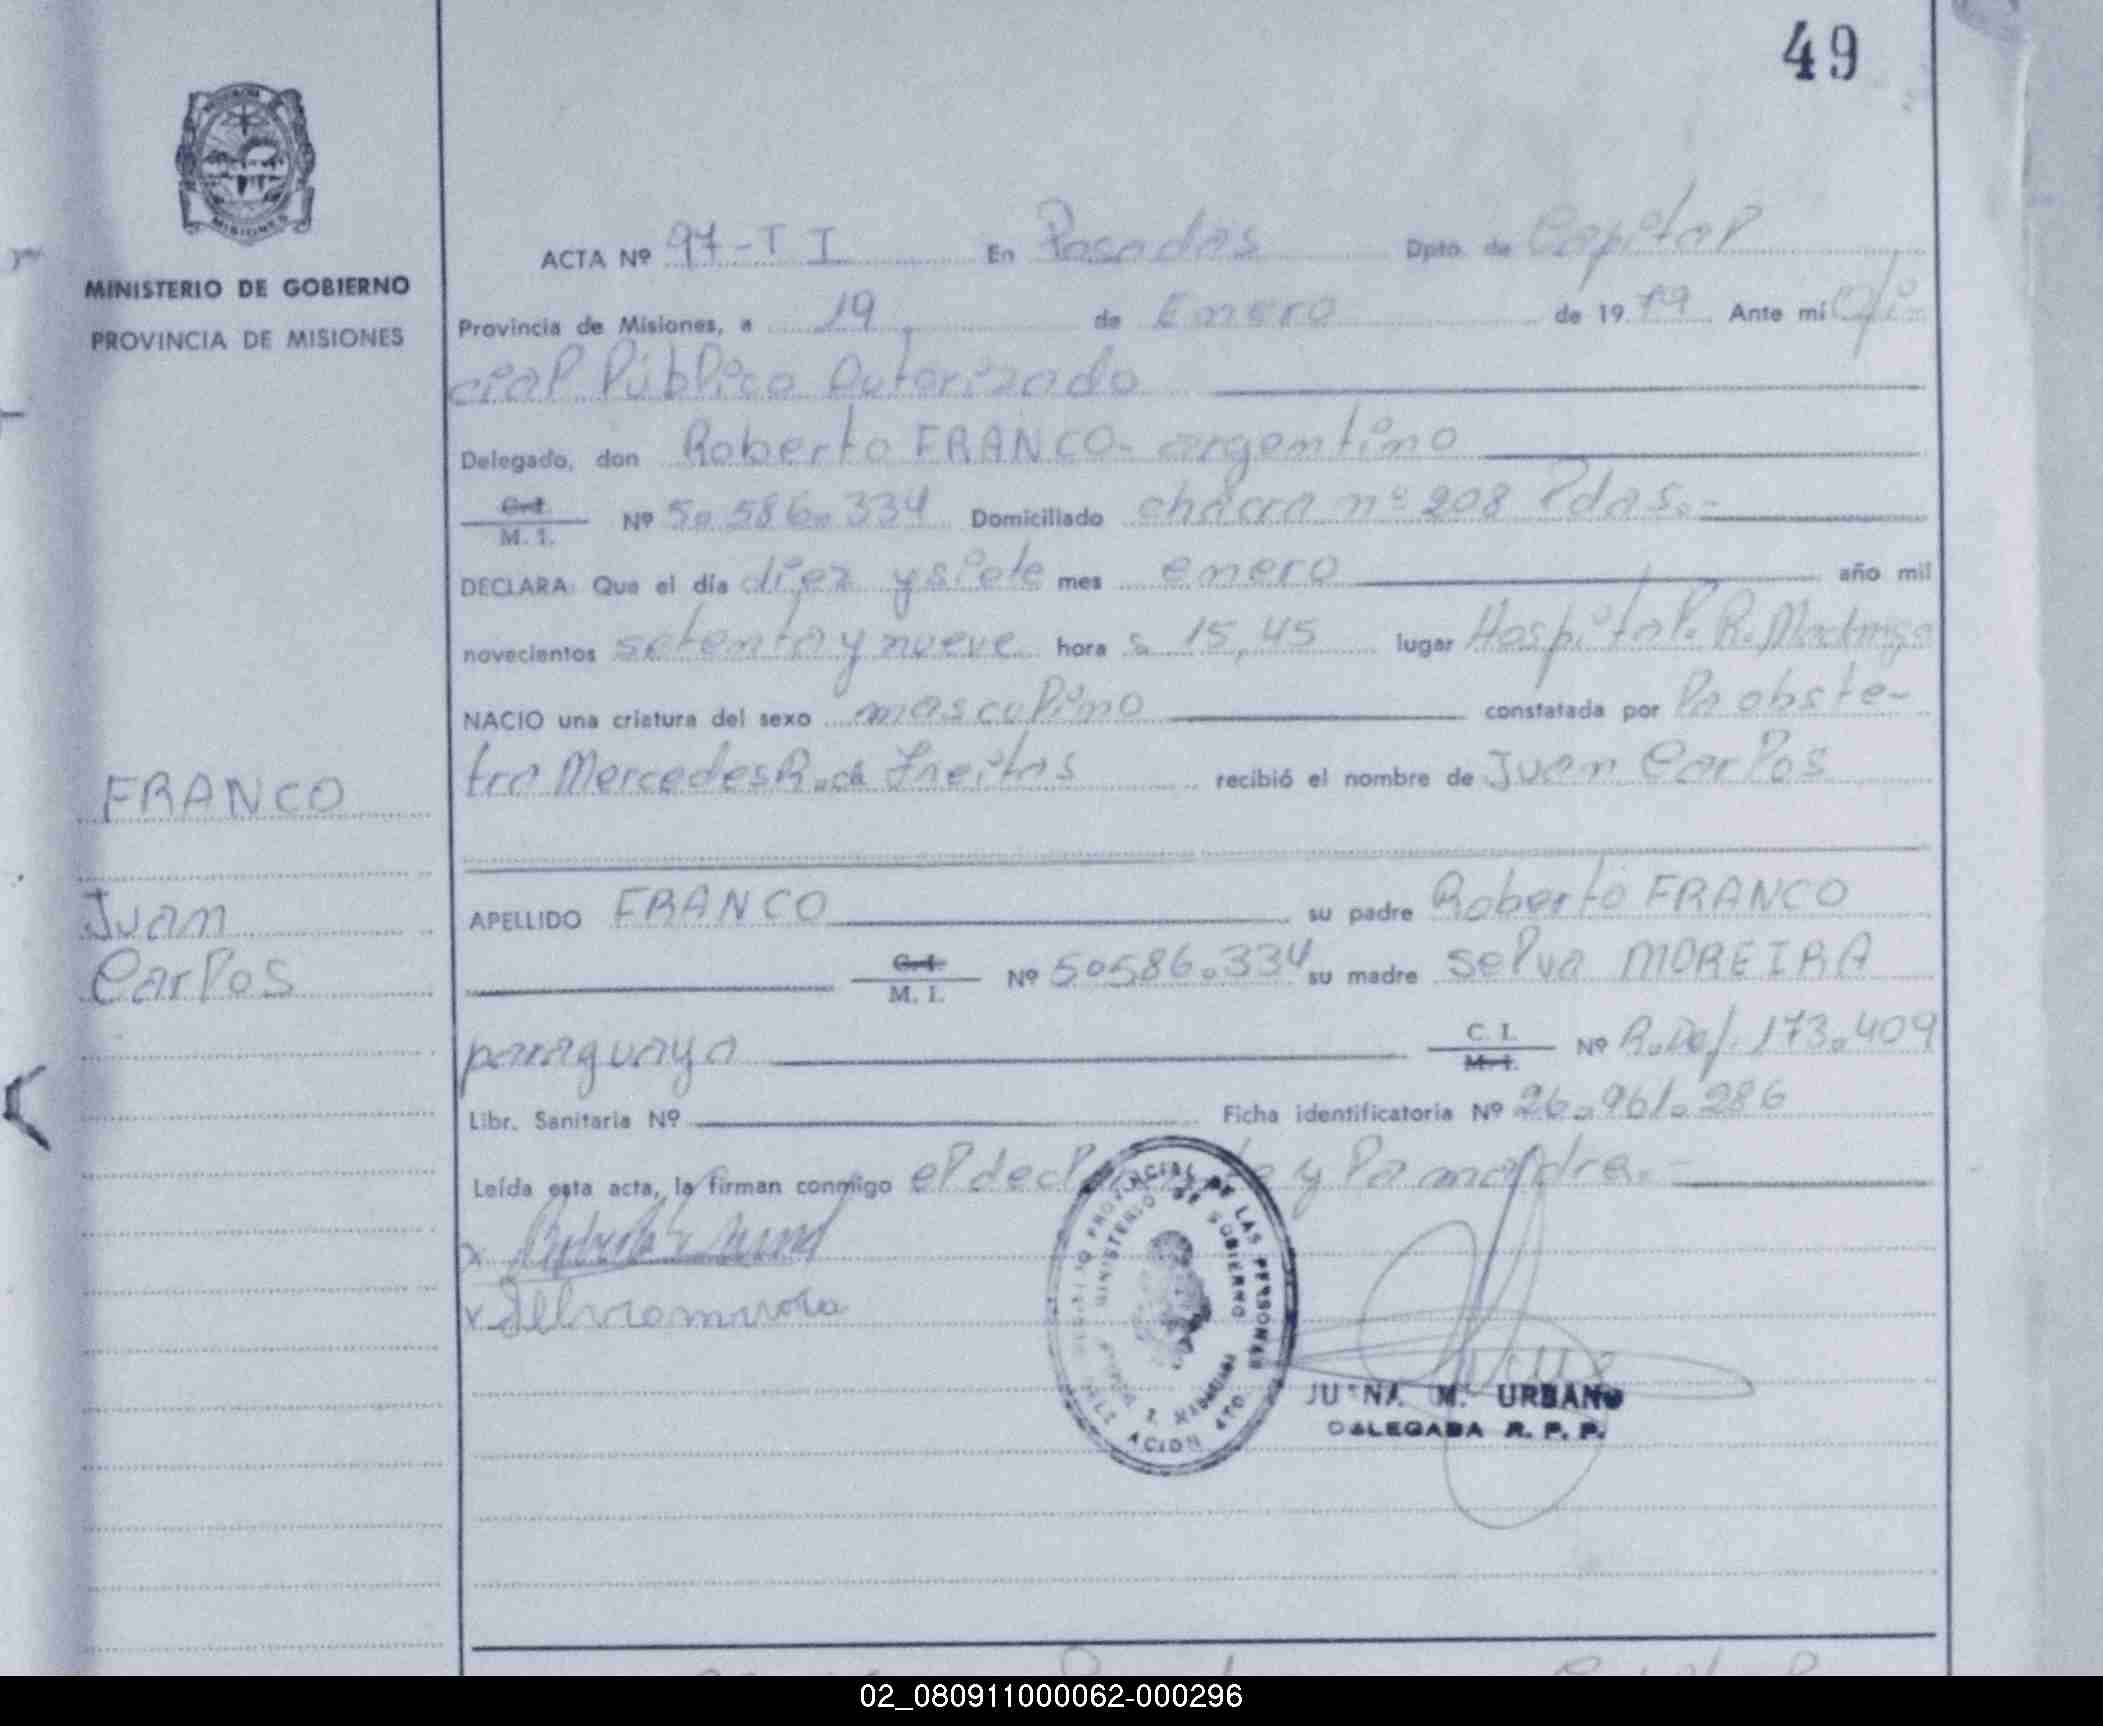 49
MINISTERIO DE GOBIERNO
PROVINCIA DE MISIONES
ACTA Nº 97-T I En Posadas Dpto. de Capital
Provincia de Misiones, a 19 de Enero de 1979 Ante mí Ofi
cial Público Autorizado
Delegado, don Roberto FRANCO- argentino
C.I.
M. I. Nº 5.586.334 Domiciliado chacra nº 208 Pdas.-
DECLARA: Que el día diez y siete mes enero año mil
novecientos setenta y nueve hora s 15,45 lugar Hospital. R. Madariaga
NACIO una criatura del sexo masculino constatada por la obste-
tra Mercedes R. de Freitas recibió el nombre de Juan Carlos
FRANCO
Juan
Carlos
APELLIDO FRANCO su padre Roberto FRANCO
C.I.
M. I. Nº 5.586.334 su madre selva MOREIRA
paraguaya C. I.
M. I. Nº R.Def. 173.409
Libr. Sanitaria Nº Ficha identificatoria Nº 26.961.286
Leída esta acta, la firman conmigo el declarante y la madre.-
REGISTRO PROVINCIAL DE LAS PERSONAS
MINISTERIO DE GOBIERNO
JUANA M. URBANO
DELEGADA R. P. P.
02_080911000062-000296